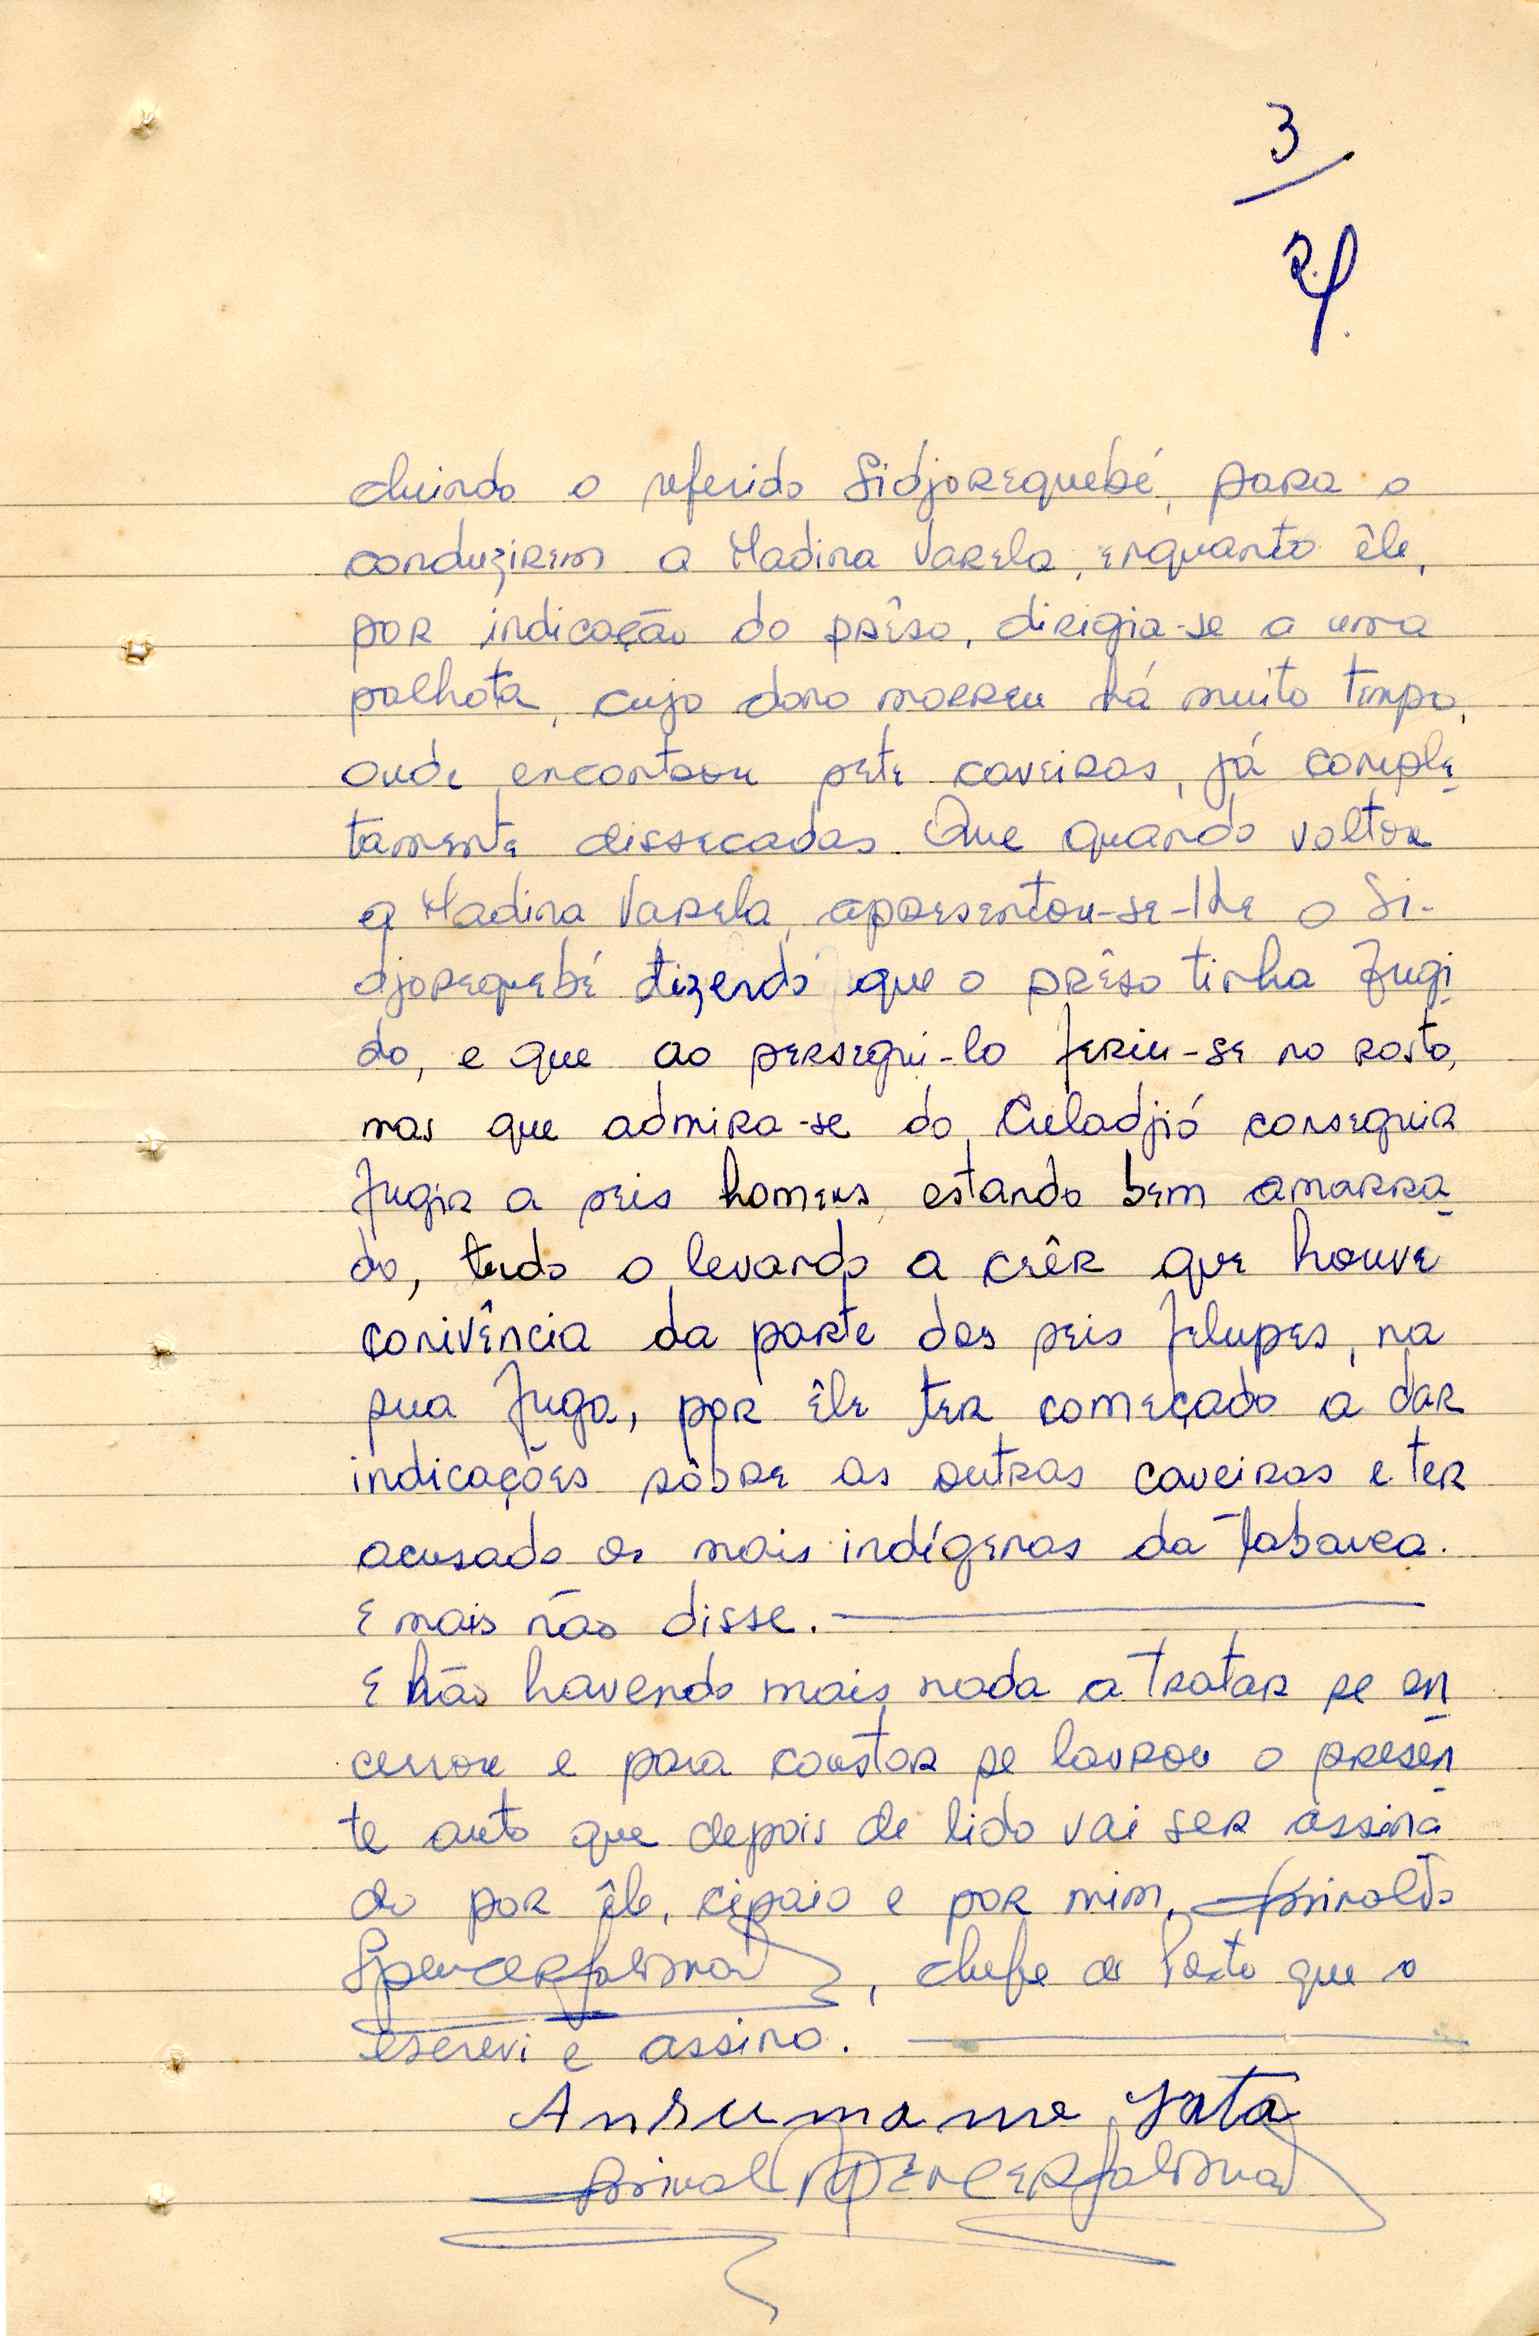 3
R.
cluindo o referido Sidjorequebé, para o
conduzirem a Madina Varela, enquanto êle,
por indicação do prêso, dirigia-se a uma
palhota, cujo dono morreu há muito tempo,
onde encontrou sete caveiras, já comple
tamente dissecadas. Que quando voltou
a Madina Varela, apresentou-se-lhe o Si-
djorequebé dizendo que o prêso tinha fugi
do, e que ao persegui-lo feriu-se no rosto,
mas que admira-se do Culadjió conseguir
fugir a seis homens, estando bem amarra
do, tudo o levando a crêr que houve
conivência da parte dos seis felupes, na
sua fuga, por êle ter começado a dar
indicações sôbre as outras caveiras e ter
acusado os mais indígenas da tabanca.
E mais não disse.
E não havendo mais nada a tratar se en
cerrou e para constar se lavrou o presen
te auto que depois de lido vai ser assina
do por êle, cipaio e por mim,
Spencer Salomão, chefe de Posto que o
escrevi e assino.
Ansumane
Spencer Salomão